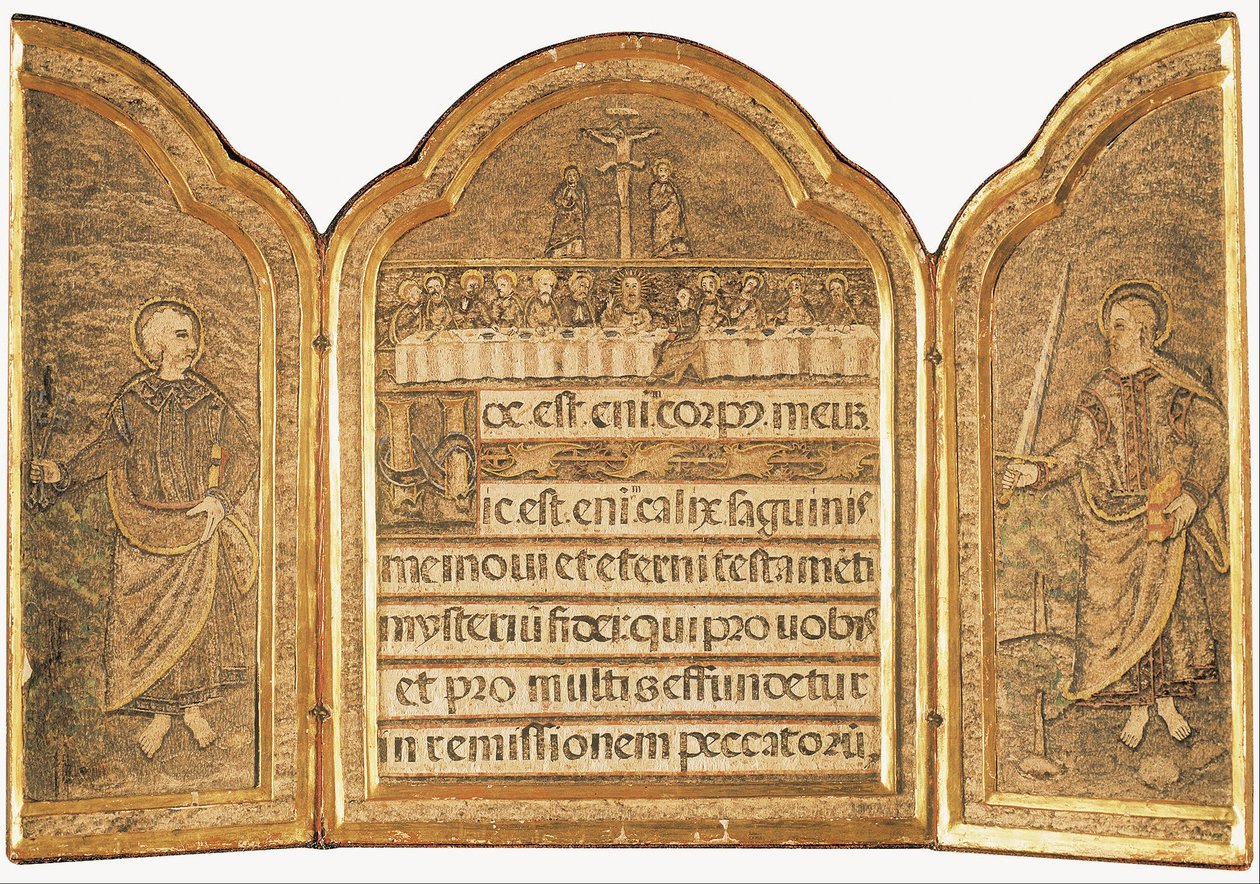 Hoc. est. enīm. corpꝰ. meuʒ.
Hic. est. enim. calix. saguinis
mei noui et eterni testamēti
mysteriū fidei: qui pro uobis
et pro multis effundetur
in remissionem peccatorū.